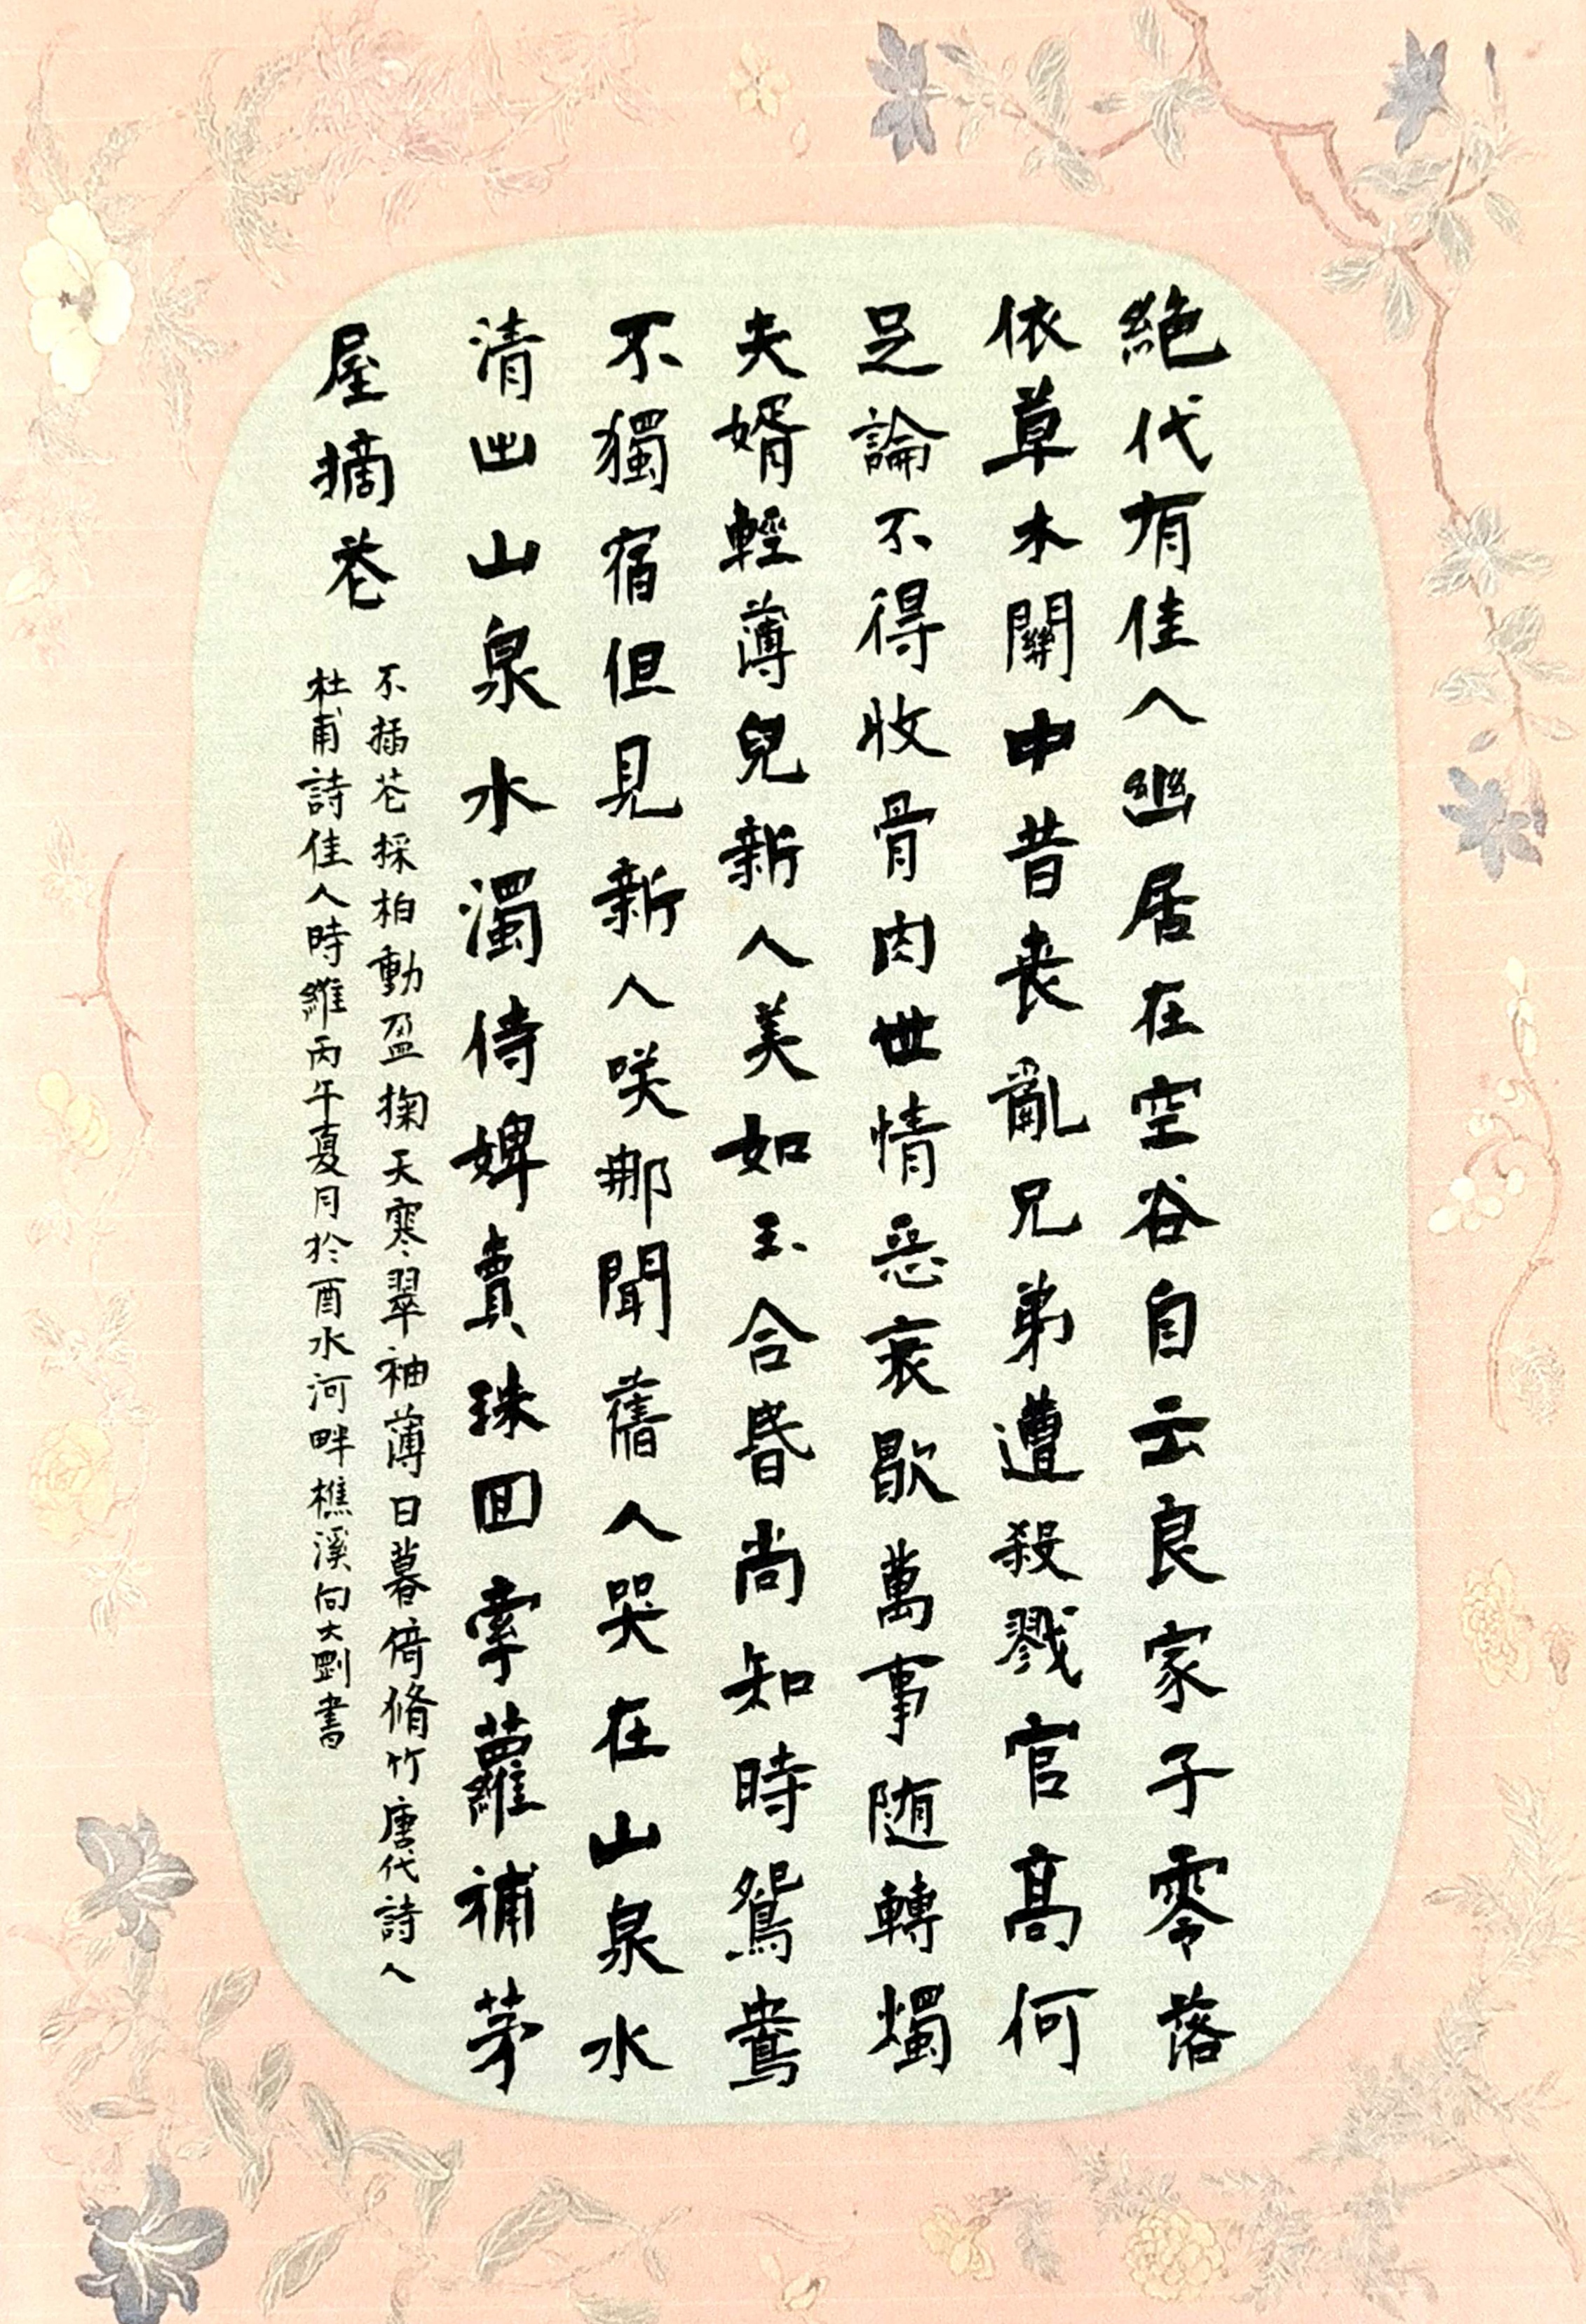 絶代有佳人幽居在空谷自云良家子零落
依草木關中昔丧亂兄弟遭殺戮官髙何
足論不得收骨肉世情惡衰歇萬事随轉燭
夫婿輕薄兒新人美如玉合昏尚知時鴛鴦
不獨宿但見新人咲那聞舊人哭在山泉水
清出山泉水濁侍婢賣珠回牽蘿補茅
屋摘花
不插花採柏動盈掬天寒翠袖薄日暮倚脩竹唐代詩人
杜甫詩佳人時維丙午夏月於酉水河畔樵溪向大劉書